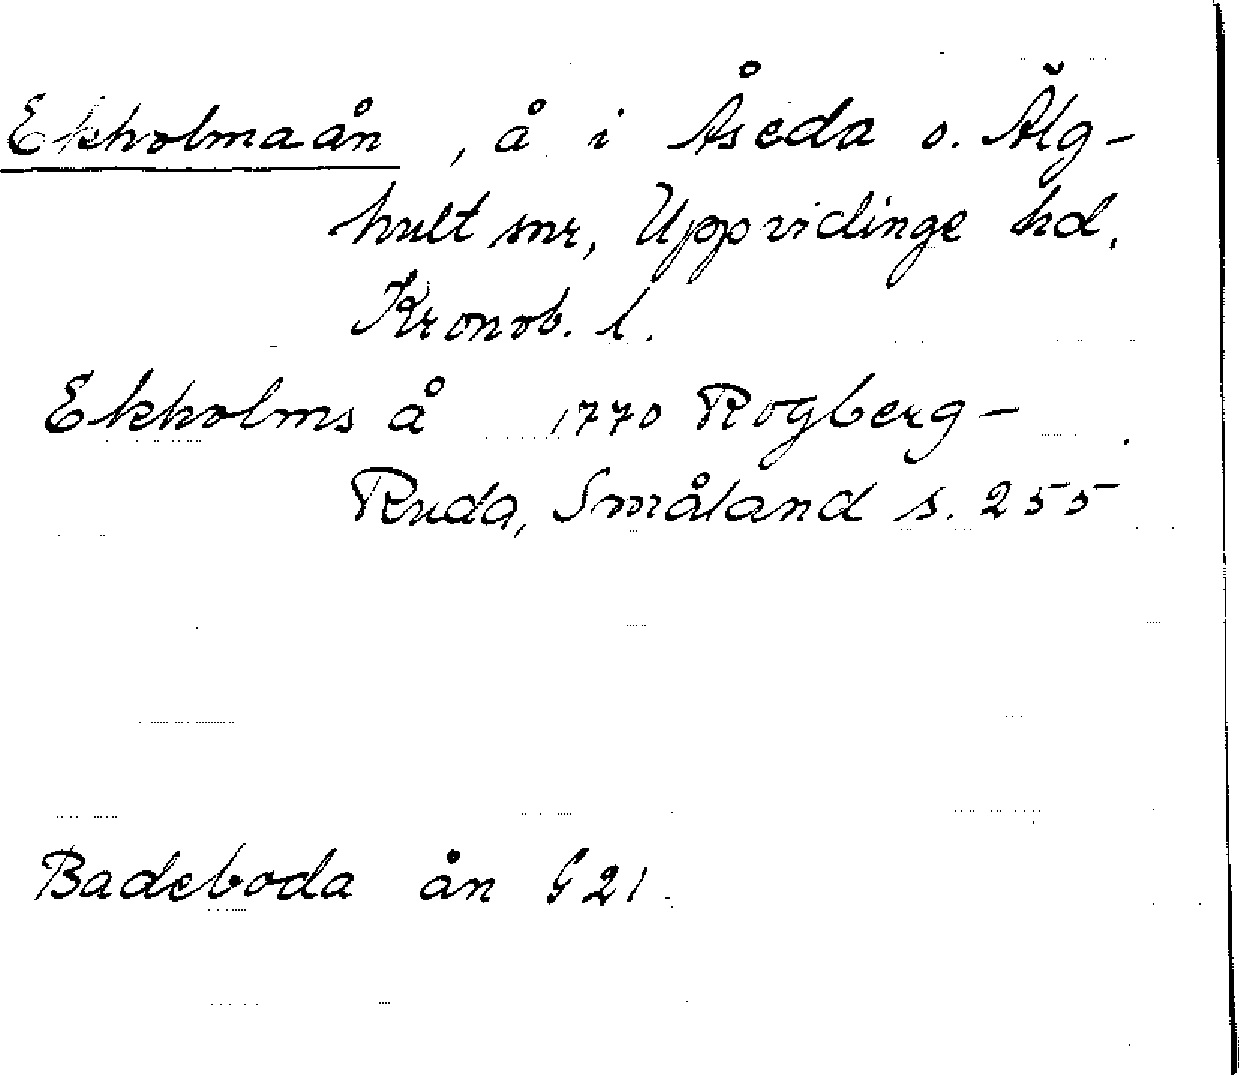 Ekholmaån, å i Åseda o. Älg-
hult snr, Uppvidinge hd,
Kronob. l.
Ekholms å 1770 Rogberg-
Ruda, Småland s. 255
Badeboda ån G 21